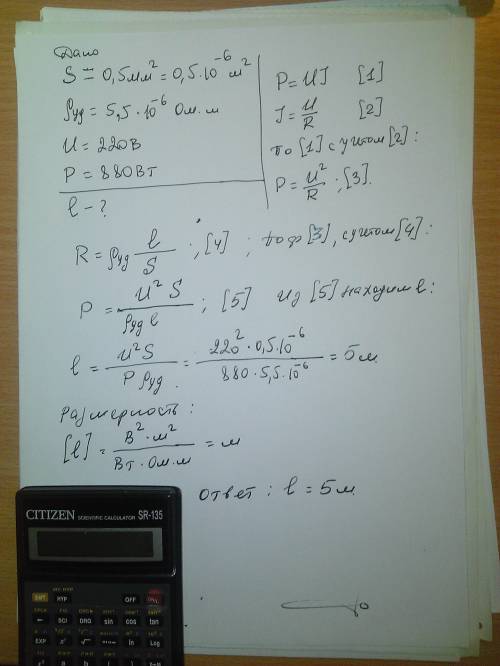 Дано
S = 0,5мм² = 0,5·10⁻⁶ м²
ρуд = 5,5·10⁻⁶ Ом·м
U = 220В
P = 880Вт
l - ?
P = UI [1]
I = U/R [2]
по [1] с учетом [2]:
P = U²/R ; [3].
R = ρуд l/S ; [4] ; по ф [3], с учетом [4]:
P = U² S / ρуд l ; [5] из [5] находим l:
l = U² S / P ρуд = 220² · 0,5·10⁻⁶ / 880 · 5,5·10⁻⁶ = 5м
Размерность:
[l] = В² · м² / Вт · Ом·м = м
Ответ: l = 5м
CITIZEN SCIENTIFIC CALCULATOR SR-135
SHIFT HYP OFF
← SCI DRG sin cos tan
EXP x² √ ln Log